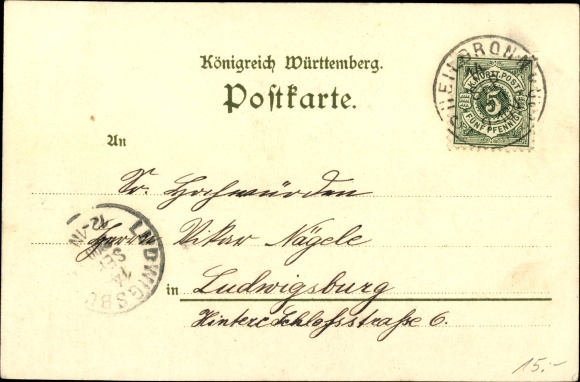 Königreich Württemberg.
Postkarte.
HEILBRONN
14
K. WÜRTT. POST
5
FÜNF PFENNIG
An
Sr. Hochwürden
Herrn Vikar Nägele
in Ludwigsburg
Hintere Schlossstraße 6.
LUDWIGSBU
14
SEP
12-
15.-